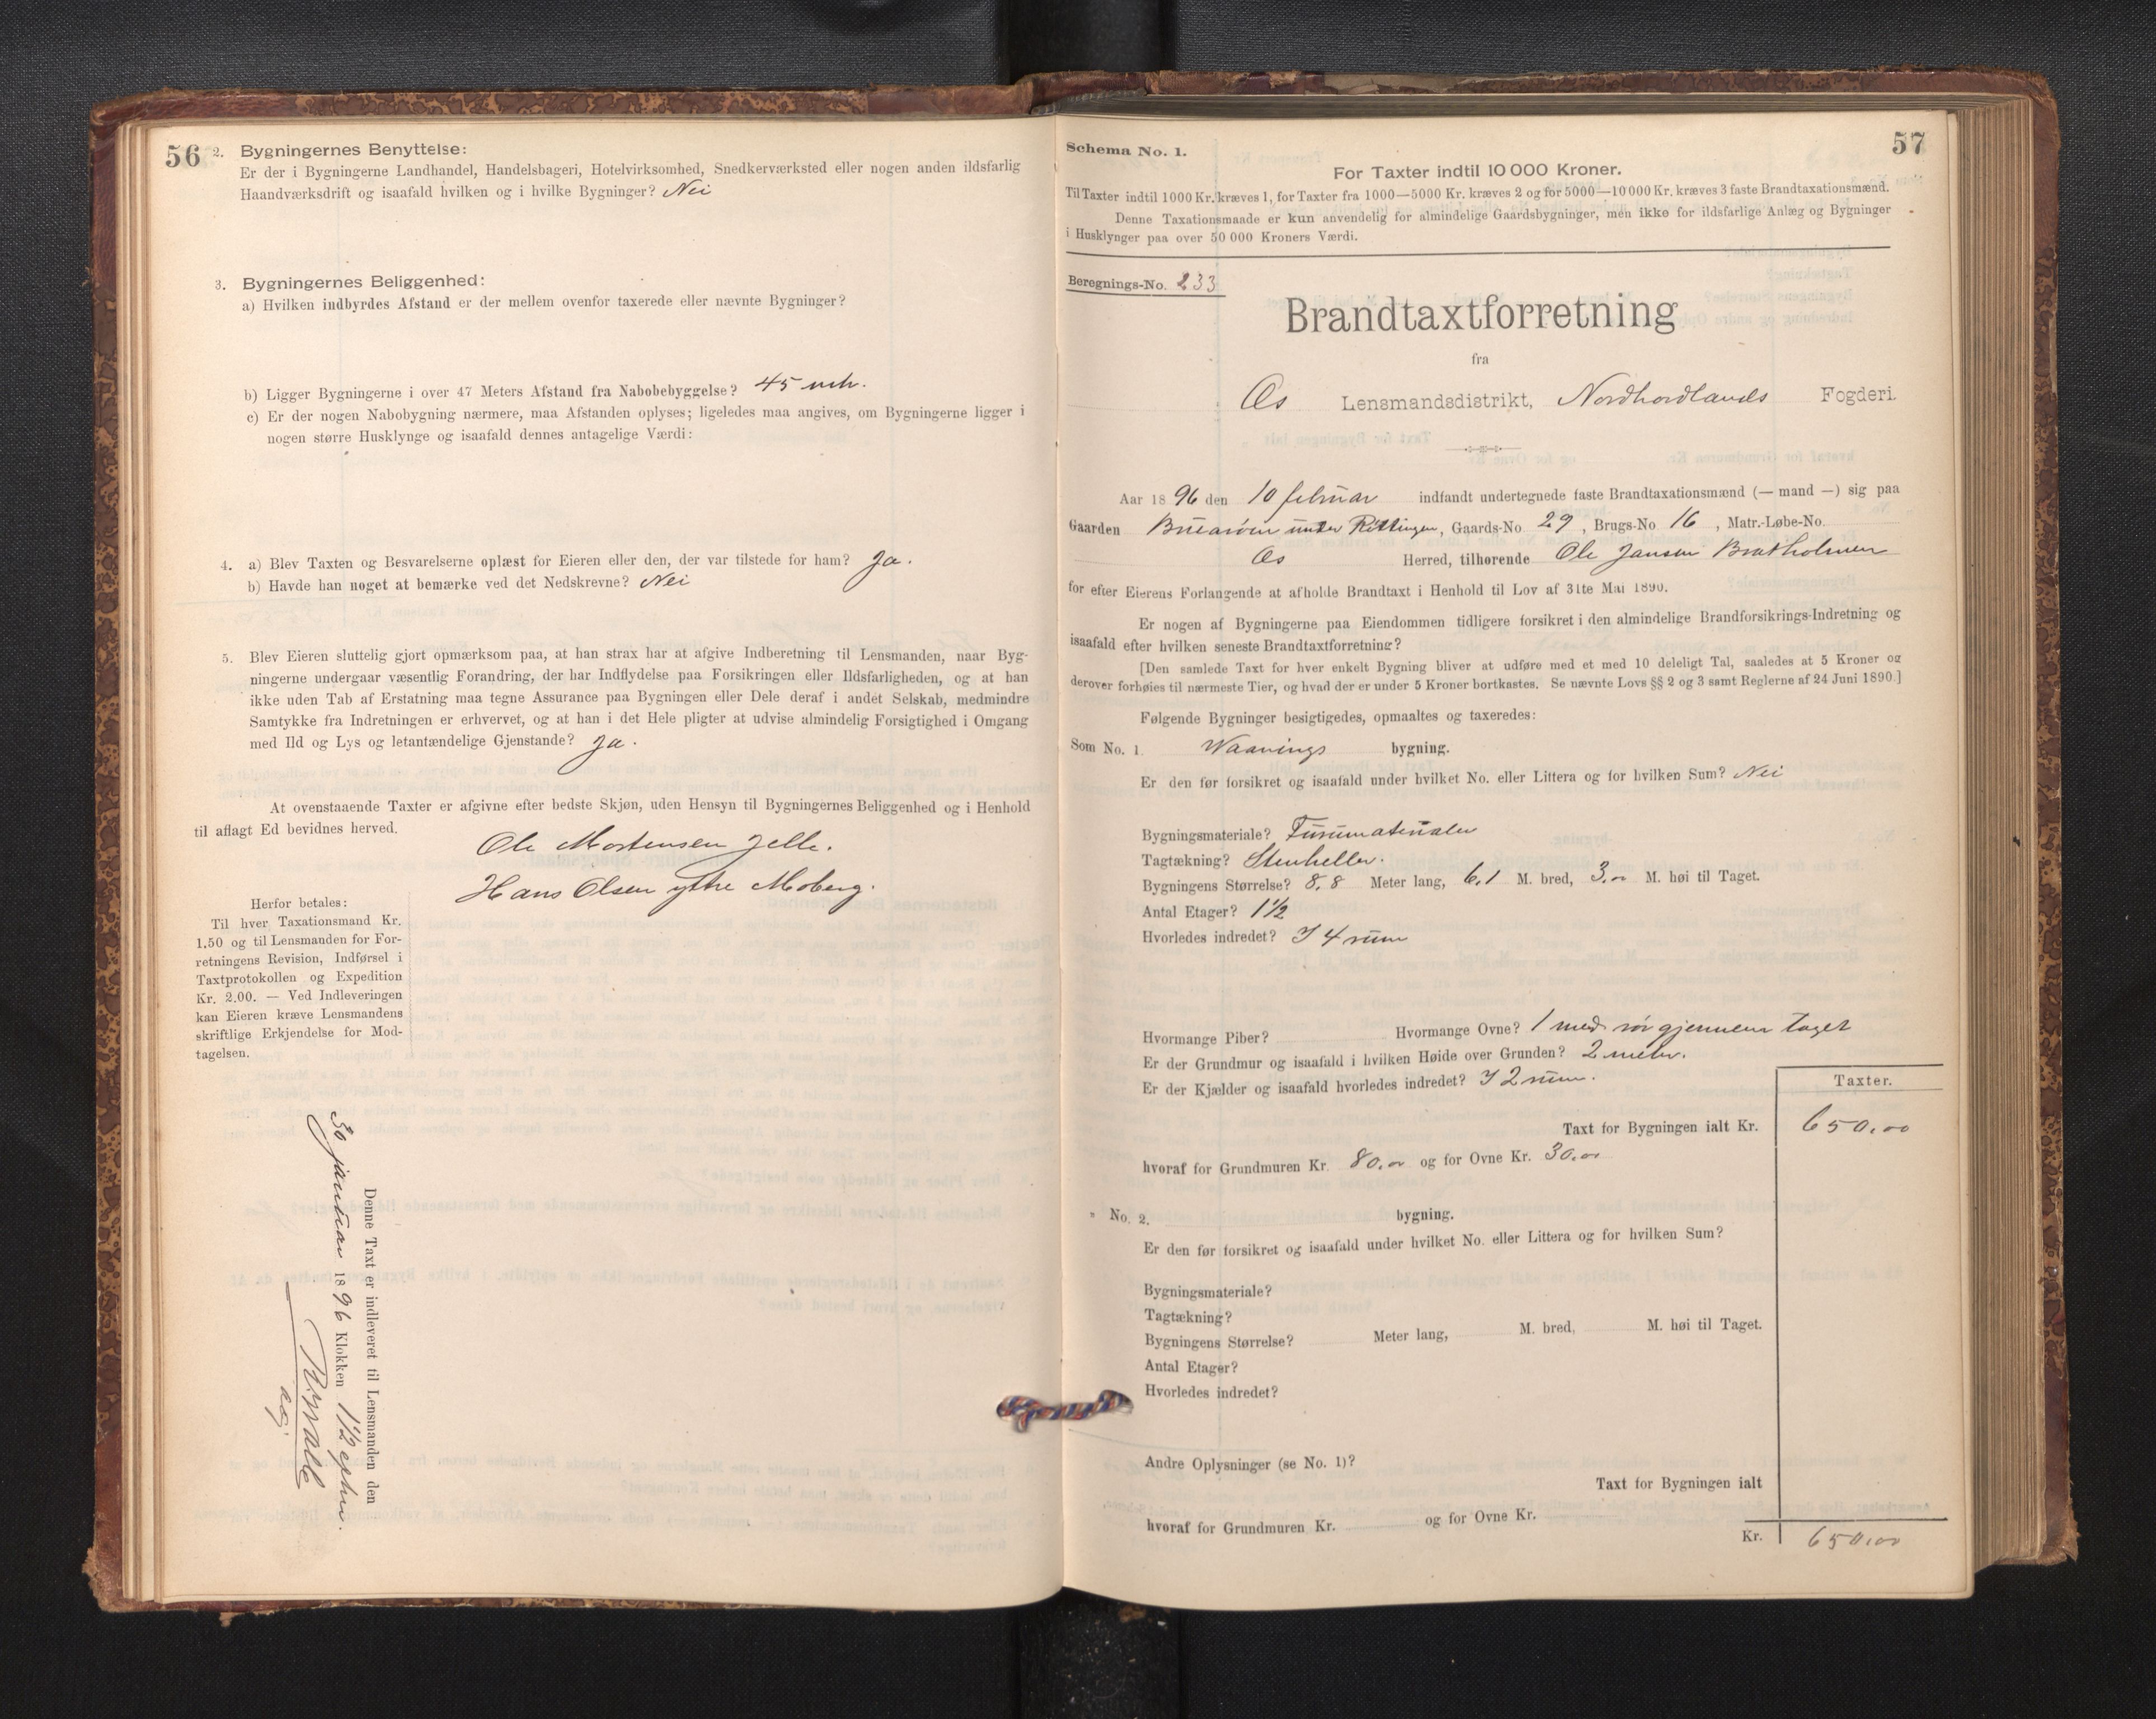 56
2. Bygningernes Benyttelse:
Er der i Bygningerne Landhandel, Handelsbageri, Hotelvirksomhed, Snedkerværksted eller nogen anden ildsfarlig
Haandværksdrift og isaafald hvilken og i hvilke Bygninger? Nei
3. Bygningernes Beliggenhed:
a) Hvilken indbyrdes Afstand er der mellem ovenfor taxerede eller nævnte Bygninger?
b) Ligger Bygningerne i over 47 Meters Afstand fra Nabobebyggelse? 45 mtr.
c) Er der nogen Nabobygning nærmere, maa Afstanden oplyses; ligeledes maa angives, om Bygningerne ligger i
nogen større Husklynge og isaafald dennes antagelige Værdi:
4. a) Blev Taxten og Besvarelserne oplæst for Eieren eller den, der var tilstede for ham? Ja.
b) Havde han noget at bemærke ved det Nedskrevne? Nei
5. Blev Eieren sluttelig gjort opmærksom paa, at han strax har at afgive Indberetning til Lensmanden, naar Byg-
ningerne undergaar væsentlig Forandring, der har Indflydelse paa Forsikringen eller Ildsfarligheden, og at han
ikke uden Tab af Erstatning maa tegne Assurance paa Bygningen eller Dele deraf i andet Selskab, medmindre
Samtykke fra Indretningen er erhvervet, og at han i det Hele pligter at udvise almindelig Forsigtighed i Omgang
med Ild og Lys og letantændelige Gjenstande? Ja.
At ovenstaaende Taxter er afgivne efter bedste Skjøn, uden Hensyn til Bygningernes Beliggenhed og i Henhold
til aflagt Ed bevidnes herved.
Ole Mortensen Jelle.
Hans Olsen ytre Moberg.
Herfor betales:
Til hver Taxationsmand Kr.
1.50 og til Lensmanden for For-
retningens Revision, Indførsel i
Taxtprotokollen og Expedition
Kr. 2.00. — Ved Indleveringen
kan Eieren kræve Lensmandens
skriftlige Erkjendelse for Mod-
tagelsen.
Denne Taxt er indleveret til Lensmanden den
30 januar 1896 Klokken 1½ eftm.
57
Schema No. 1.
For Taxter indtil 10 000 Kroner.
Til Taxter indtil 1000 Kr. kræves 1, for Taxter fra 1000—5000 Kr. kræves 2 og for 5000—10 000 Kr. kræves 3 faste Brandtaxationsmænd.
Denne Taxationsmaade er kun anvendelig for almindelige Gaardsbygninger, men ikke for ildsfarlige Anlæg og Bygninger
i Husklynger paa over 50 000 Kroners Værdi.
Beregnings-No. 233
Brandtaxtforretning
fra
Os Lensmandsdistrikt, Nordhordlands Fogderi.
Aar 1896 den 10 februar indfandt undertegnede faste Brandtaxationsmænd (— mand —) sig paa
Gaarden under Röttingen, Gaards-No. 29, Brugs-No 16, Matr.-Løbe-No.
Os Herred, tilhørende Ole Jansen Bratholmen
for efter Eierens Forlangende at afholde Brandtaxt i Henhold til Lov af 31te Mai 1890.
Er nogen af Bygningerne paa Eiendommen tidligere forsikret i den almindelige Brandforsikrings-Indretning og
isaafald efter hvilken seneste Brandtaxtforretning?
[Den samlede Taxt for hver enkelt Bygning bliver at udføre med et med 10 deleligt Tal, saaledes at 5 Kroner og
derover forhøies til nærmeste Tier, og hvad der er under 5 Kroner bortkastes. Se nævnte Lovs §§ 2 og 3 samt Reglerne af 24 Juni 1890.]
Følgende Bygninger besigtigedes, opmaaltes og taxeredes:
Som No. 1. Waanings bygning.
Er den før forsikret og isaafald under hvilket No. eller Littera og for hvilken Sum? Nei
Bygningsmateriale? Furumaterialer
Tagtækning? Stenheller.
Bygningens Størrelse? 8,8 Meter lang, 6,1 M. bred, 3,00 M. høi til Taget.
Antal Etager? 1½
Hvorledes indredet? I 4 rum
Hvormange Piber? Hvormange Ovne? 1 med rör gjennem taget
Er der Grundmur og isaafald i hvilken Høide over Grunden? 2 meter.
Er der Kjælder og isaafald hvorledes indredet? I 2 rum.
Taxter.
Taxt for Bygningen ialt Kr. 650,00
hvoraf for Grundmuren Kr. 80,00 og for Ovne Kr. 30,00
" No. 2. bygning.
Er den før forsikret og isaafald under hvilket No. eller Littera og for hvilken Sum?
Bygningsmateriale?
Tagtækning?
Bygningens Størrelse? Meter lang, M. bred, M. høi til Taget.
Antal Etager?
Hvorledes indredet?
Andre Oplysninger (se No. 1)?
Taxt for Bygningen ialt
hvoraf for Grundmuren Kr. og for Ovne Kr.
Kr. 650,00